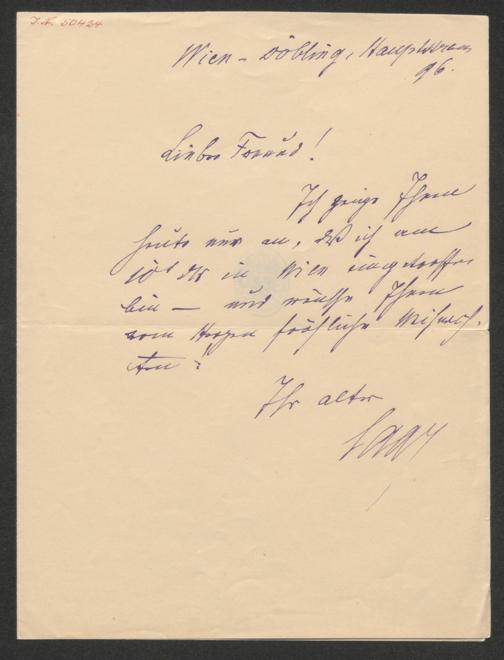 I.N. 50424
Wien – Döbling, Hauptstrasse
96.
Lieber Freund!
Ich zeige Ihnen
heute nur an, daß ich am
in Wien eingetroffen
bin — und wünsche Ihnen
vom Herzen fröhliche Weihnach-
ten!
Ihr alter
Saar